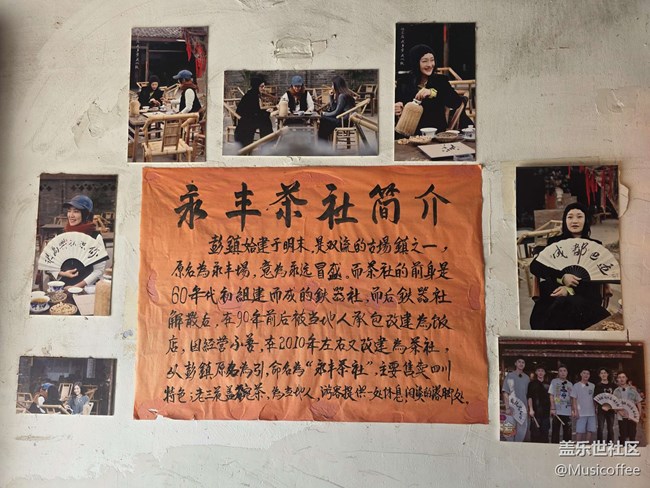 永丰茶社简介
彭鎮始建于明末,是双流的古場鎮之一,
原名為永丰場,意為永远冒盛.而茶社的前身是
60年代初組建而成的鉄器社,而后鉄器社
解散后,在90年前后被当地人承包改建為饭
店,因经营不善,在2010年左右又改建為茶社,
从彭鎮原名為引,命名為“永丰茶社”,主要售卖四川
特色:老三花盖碗茶,為当地人,游客提供一处休息闲娱的落脚处.
成都巴适
盖乐世社区
@Musicoffee